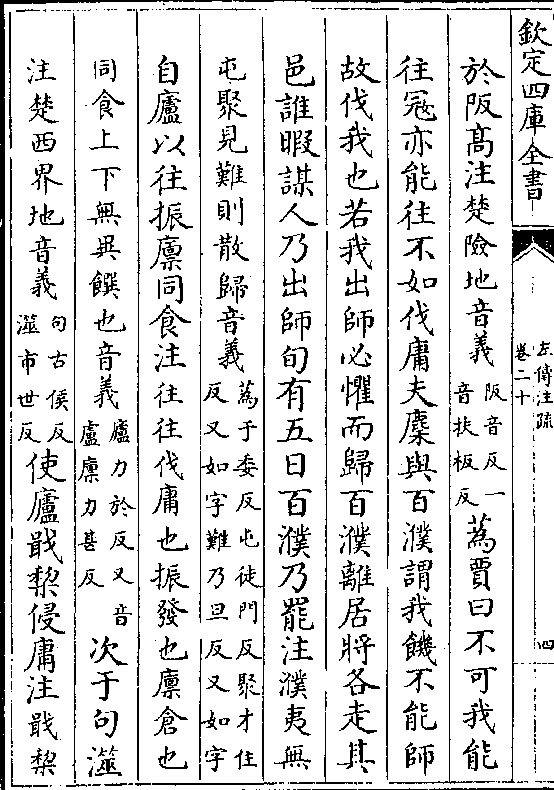 欽定四庫全書
左傳注疏
卷二十
四
於阪髙注楚險地音義阪音反一音扶板反蒍賈曰不可我能
往冦亦能往不如伐庸夫麇與百濮謂我饑不能師
故伐我也若我出師必懼而歸百濮離居將各走其
邑誰暇謀人乃出師旬有五日百濮乃罷注濮夷無
屯聚見難則散歸音義蒍于委反屯徒門反聚才住反又如字難乃旦反又如字
自廬以往振廪同食注往往伐庸也振發也廪倉也
同食上下無異饌也音義廬力於反又音盧廪力甚反次于句澨
注楚西界地音義句古侯反澨市世反使廬戢棃侵庸注戢棃